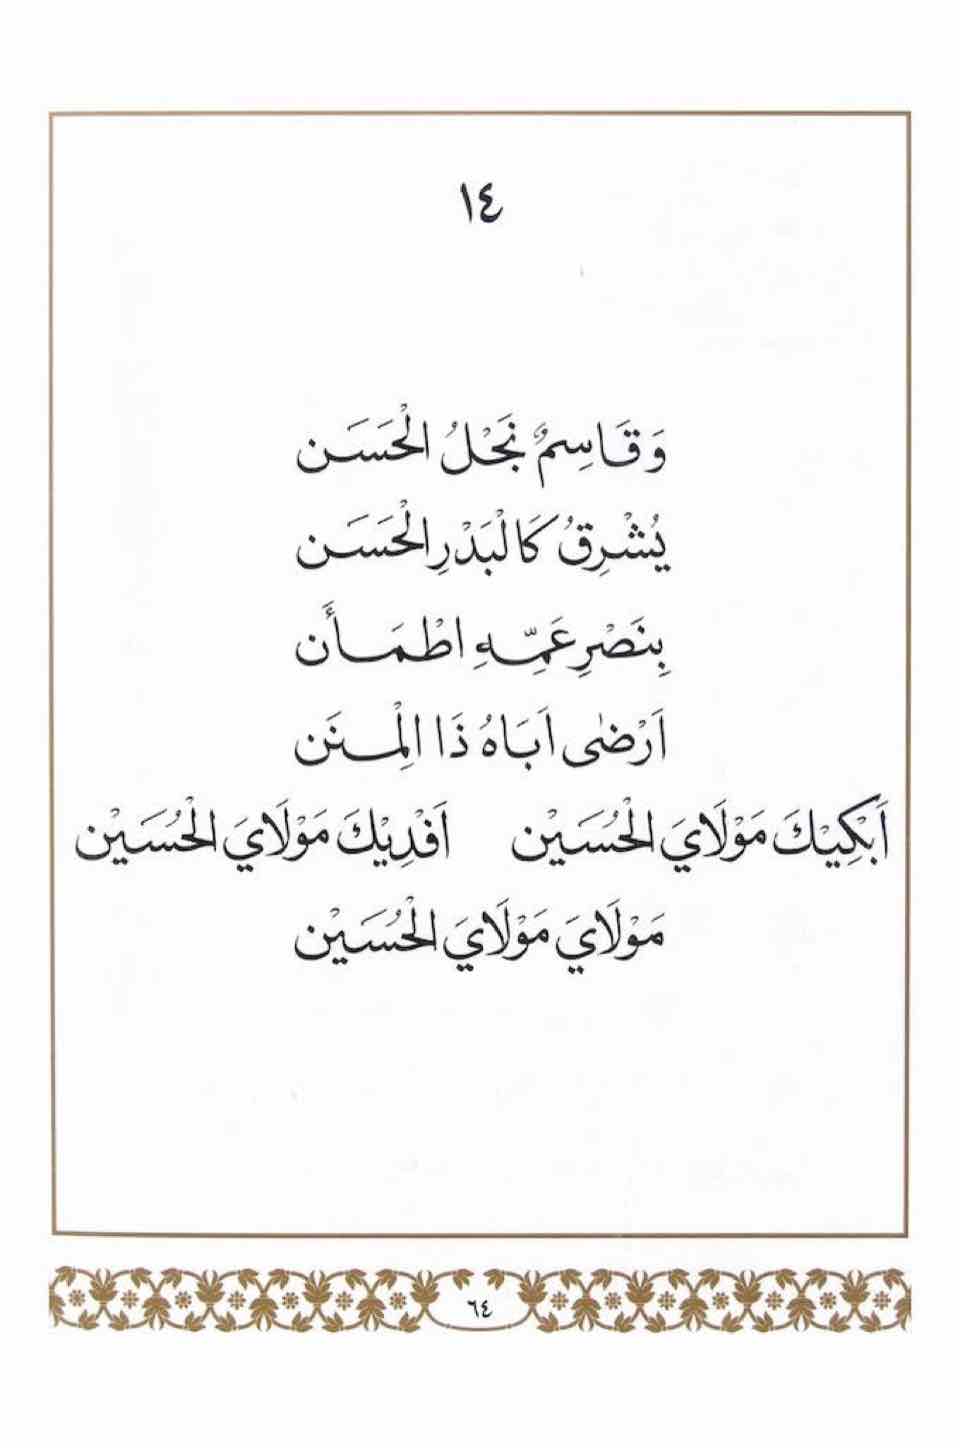 ١٤
وَقَاسِمٌ نَجْلُ الْحَسَن
يُشْرِقُ كَالْبَدْرِ الْحَسَن
بِنَصْرِ عَمِّهِ اطْمَأَن
اَرْضٰى اَبَاهُ ذَا الْمِنَن
اَبْكِيْكَ مَوْلَايَ الْحُسَيْن اَفْدِيْكَ مَوْلَايَ الْحُسَيْن
مَوْلَايَ مَوْلَايَ الْحُسَيْن
٦٤